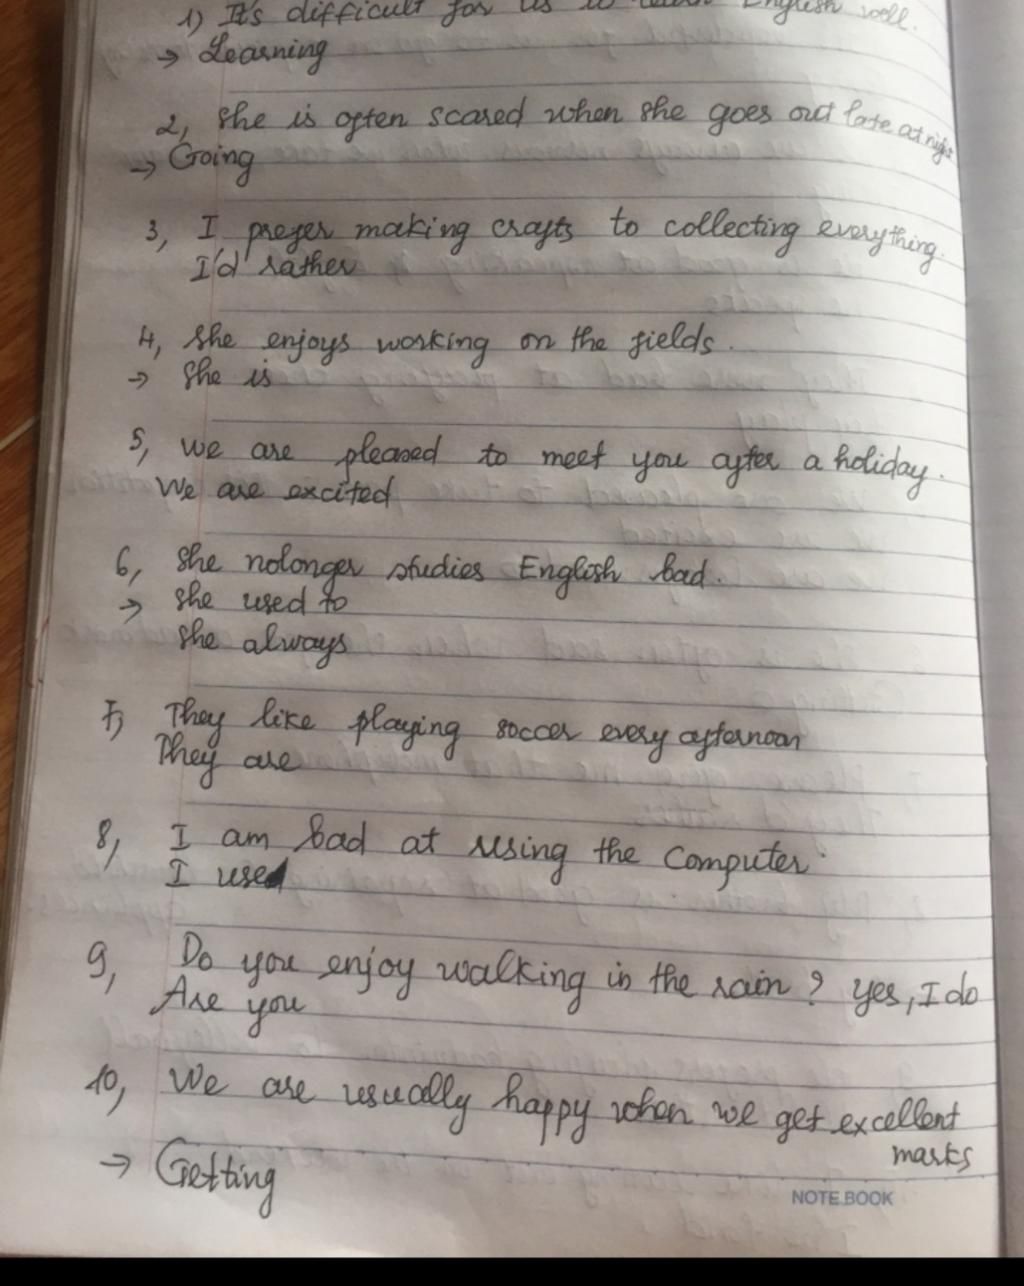 1) It's difficult for us to learn English well.
→ Learning
2, She is often scared when she goes out late at night
→ Going
3, I prefer making crafts to collecting everything.
I'd rather
4, She enjoys working on the fields.
→ She is
5, We are pleased to meet you after a holiday.
We are excited
6, She nolonger studies English bad.
→ She used to
She always
7, They like playing soccer every afternoon
They are
8, I am bad at using the computer.
I used
9, Do you enjoy walking in the rain? Yes, I do
Are you
10, We are usually happy when we get excellent
marks
→ Getting
NOTE BOOK